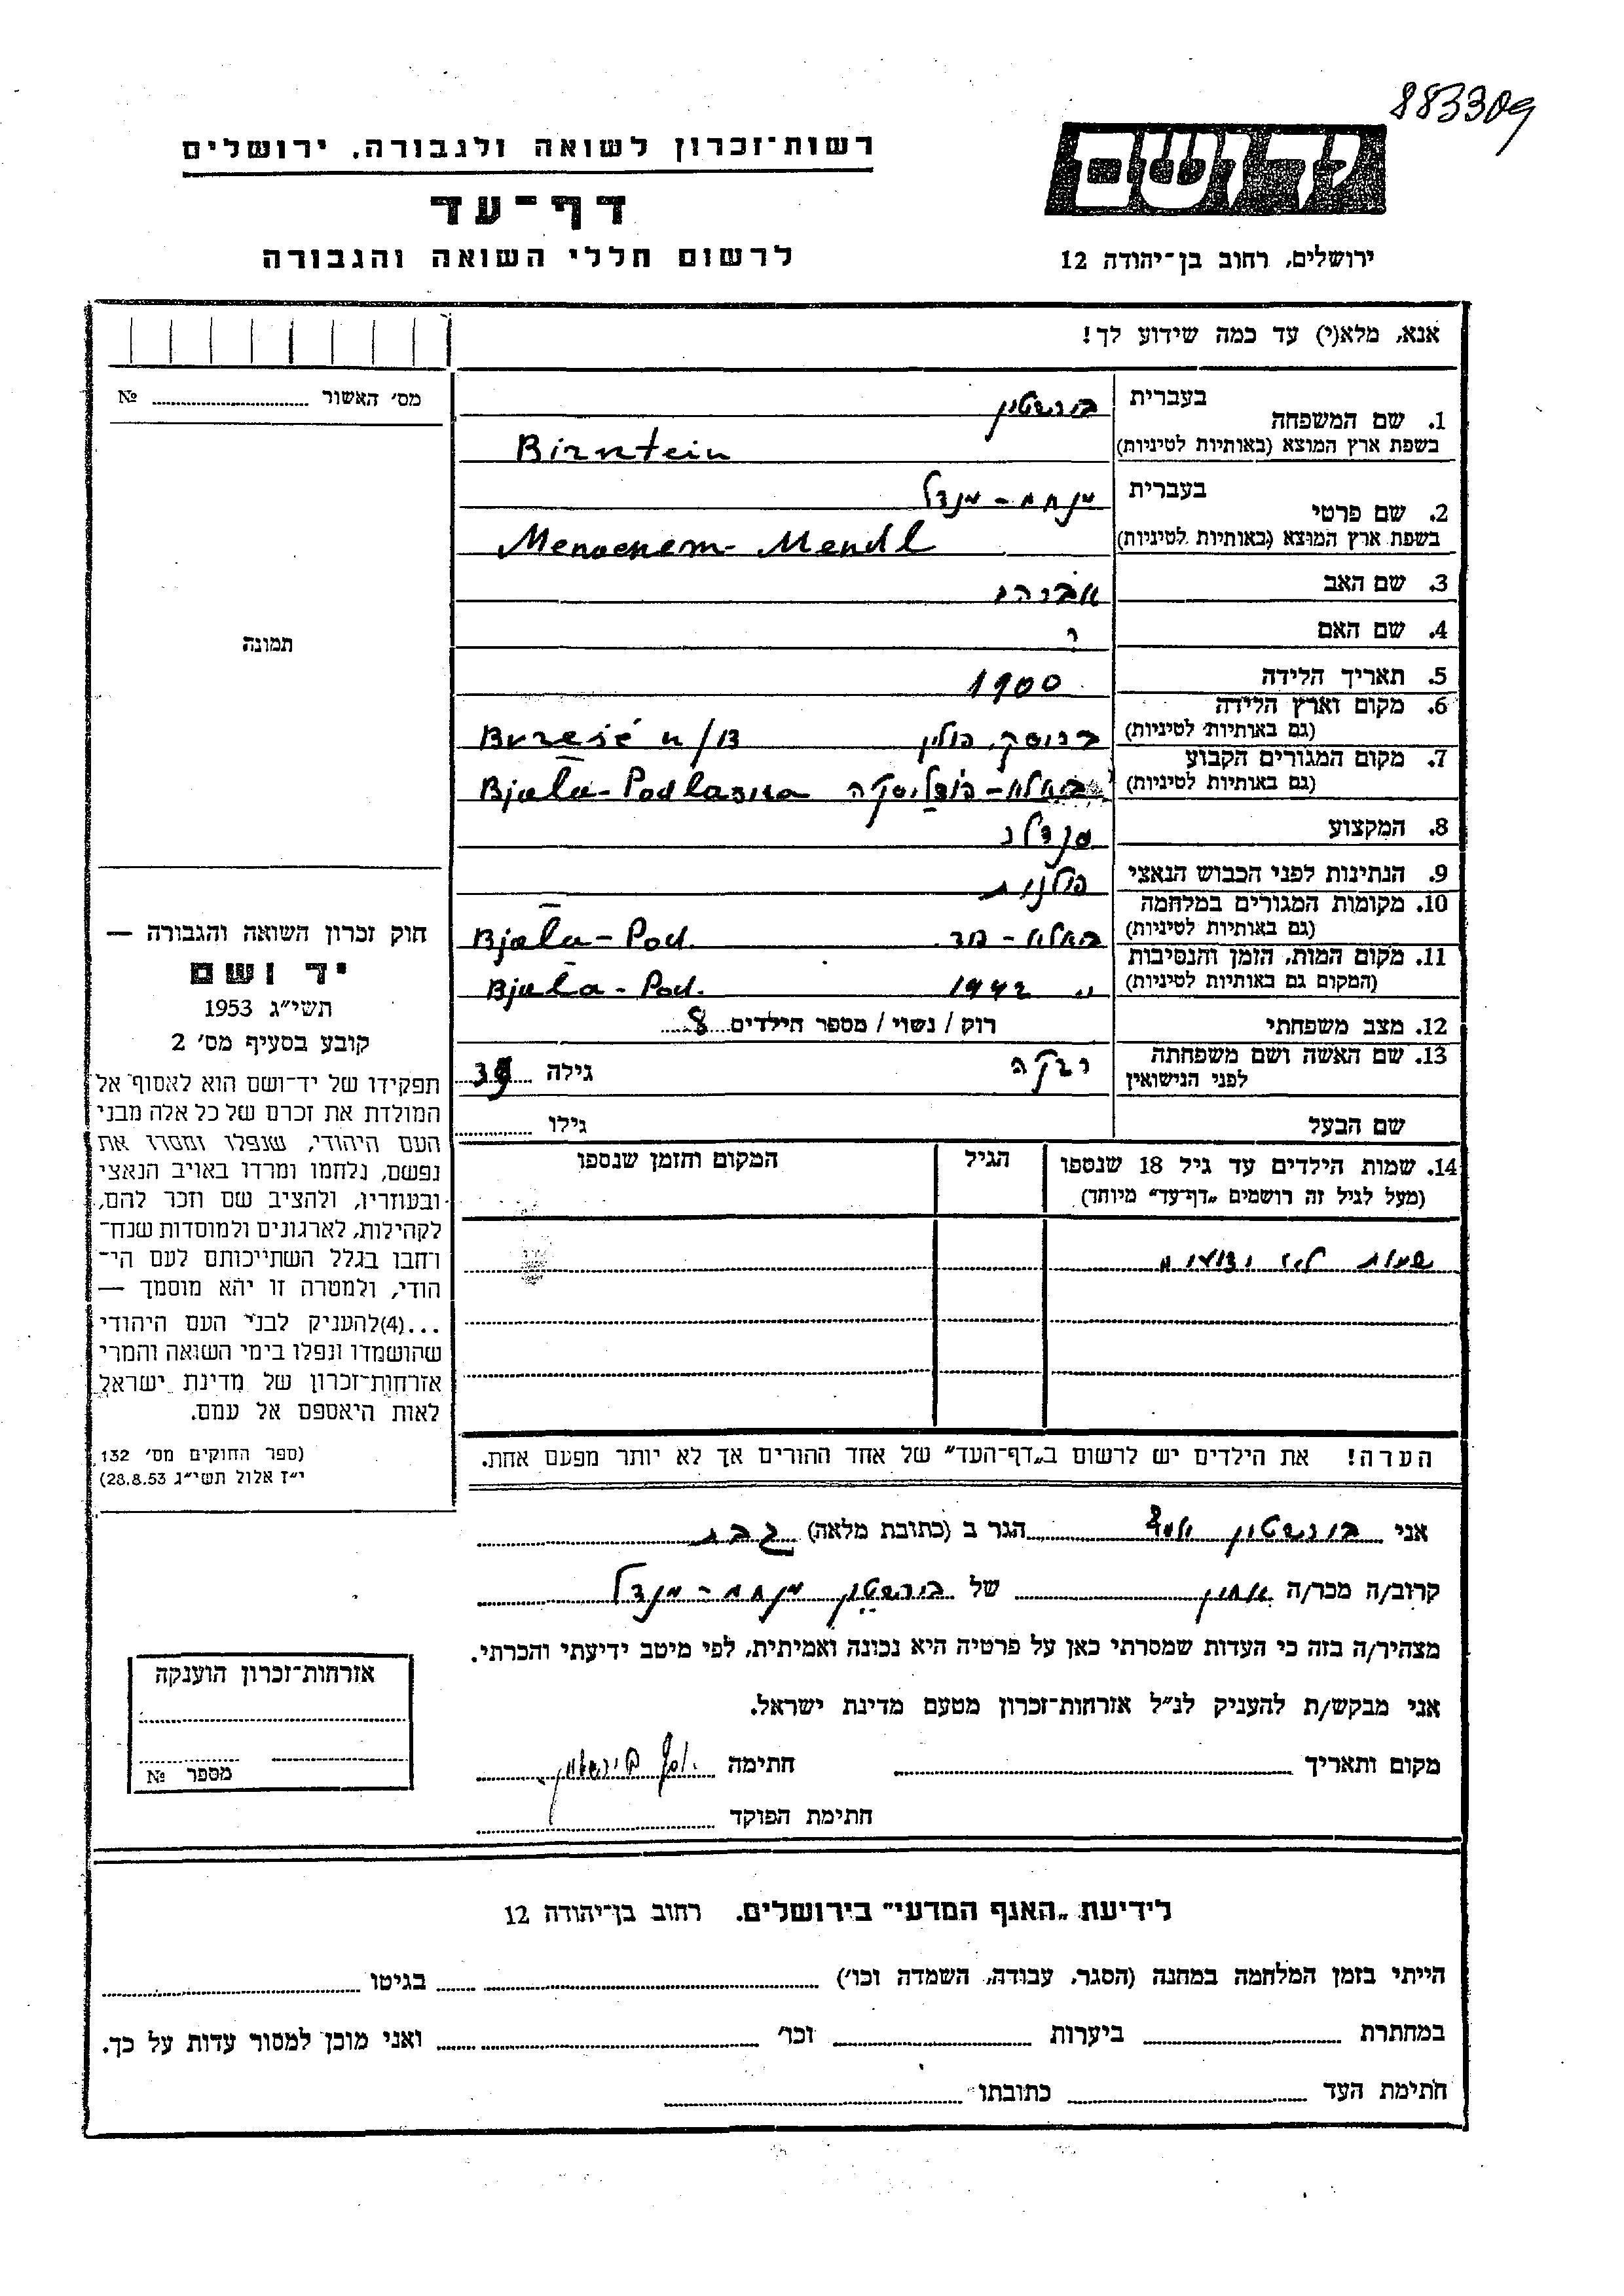 883309
יד ושם
ירושלים, רחוב בן־יהודה 12
רשות־זכרון לשואה ולגבורה, ירושלים
דף־עד
לרשום חללי השואה והגבורה
אנא, מלא(י) עד כמה שידוע לך!
מס׳ האשור № 
1. שם המשפחה בעברית
בשפת ארץ המוצא (באותיות לטיניות) Birntein
2. שם פרטי בעברית מנחם - מנדל
בשפת ארץ המוצא (באותיות לטיניות) Menaenem - Mendl
3. שם האב
4. שם האם ?
5. תאריך הלידה 1900
6. מקום וארץ הלידה
(גם באותיות לטיניות) בריסק, פולין Brześć n/B
7. מקום המגורים הקבוע
(גם באותיות לטיניות) ביאלא - פודליסקה Bjala - Podlaska
8. המקצוע סנדלר
9. הנתינות לפני הכבוש הנאצי פולנית
10. מקומות המגורים במלחמה
(גם באותיות לטיניות) ביאלא - פוד. Bjala - Pod.
11. מקום המות, הזמן והנסיבות
(המקום גם באותיות לטיניות) " 1942 Bjala - Pod.
12. מצב משפחתי רוק / נשוי / מספר הילדים 8
13. שם האשה ושם משפחתה
לפני הנישואין רבקה גילה 39
שם הבעל גילו
14. שמות הילדים עד גיל 18 שנספו הגיל המקום והזמן שנספו
(מעל לגיל זה רושמים „דף־עד״ מיוחד)
שמות לא ידועים
הערה! את הילדים יש לרשום ב„דף־העד״ של אחד ההורים אך לא יותר מפעם אחת.
תמונה
חוק זכרון השואה והגבורה —
יד ושם
תשי״ג 1953
קובע בסעיף מס׳ 2
תפקידו של יד־ושם הוא לאסוף אל
המולדת את זכרם של כל אלה מבני
העם היהודי, שנפלו ומסרו את
נפשם, נלחמו ומרדו באויב הנאצי
ובעוזריו, ולהציב שם וזכר להם,
לקהילות, לארגונים ולמוסדות שנח־
רחבו בגלל השתייכותם לעם הי־
הודי, ולמטרה זו יהא מוסמך —
...(4)להעניק לבני העם היהודי
שהושמדו ונפלו בימי השואה והמרי
אזרחות־זכרון של מדינת ישראל
לאות היאספם אל עמם.
(ספר החוקים מס׳ 132,
י״ז אלול תשי״ג 28.8.53)
אני בירנשטיין הגר ב (כתובת מלאה)
קרוב/ה מכר/ה אחיין של בירנשטיין מנחם - מנדל
מצהיר/ה בזה כי העדות שמסרתי כאן על פרטיה היא נכונה ואמיתית, לפי מיטב ידיעתי והכרתי.
אני מבקש/ת להעניק לנ״ל אזרחות־זכרון מטעם מדינת ישראל.
מקום ותאריך חתימה
חתימת הפוקד
אזרחות־זכרון הוענקה
מספר №
לידיעת „האגף המדעי״ בירושלים. רחוב בן־יהודה 12
הייתי בזמן המלחמה במחנה (הסגר, עבודה, השמדה וכו׳) בגיטו
במחתרת ביערות וכו׳ ואני מוכן למסור עדות על כך.
חתימת העד כתובתו